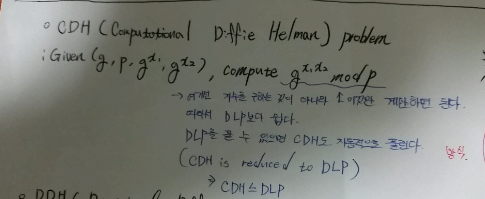 ◦ CDH (Computational Diffie Helman) problem
: Given (g, p, g^x₁, g^x₂), compute g^x₁x₂ mod p
→ 여기선 지수를 구하는 것이 아니라 ↑ 이것만 계산하면 된다.
따라서 DLP보다 쉽다.
DLP를 풀 수 있으면 CDH도 자동적으로 풀린다.
(CDH is reduced to DLP)
⇒ CDH ≤ DLP
◦ DDH (